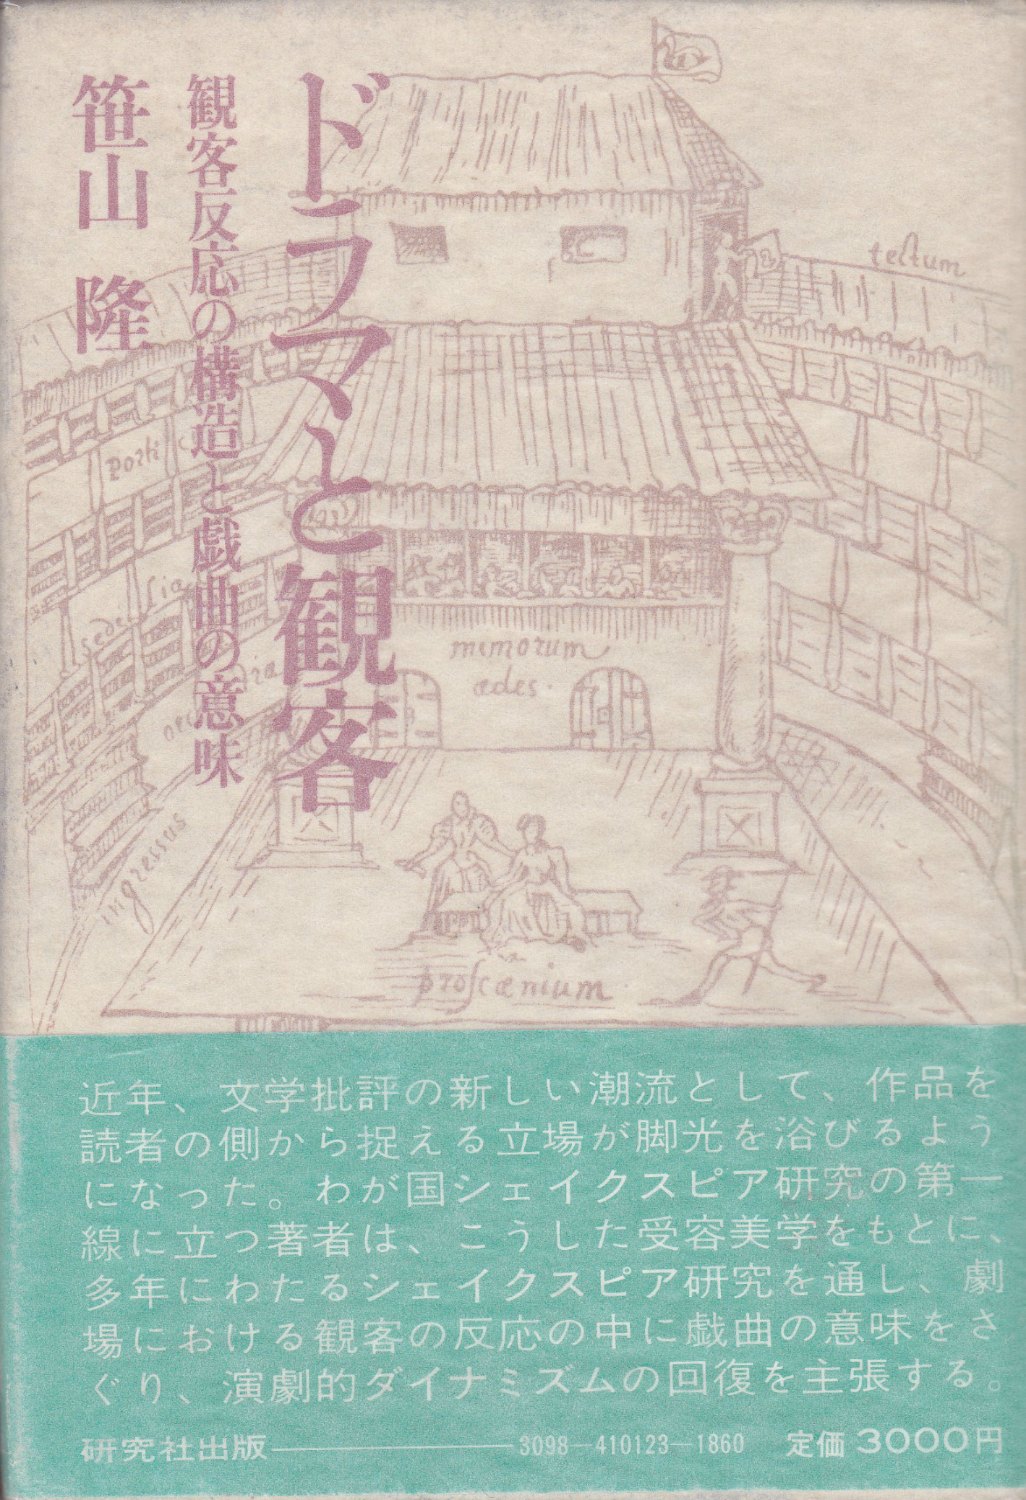 ドラマと観客
観客反応の構造と戯曲の意味
笹山 隆
tectum
porti
sedilia
orchestra
ingressus
mimorum
ædes.
proscænium
近年、文学批評の新しい潮流として、作品を
読者の側から捉える立場が脚光を浴びるよう
になった。わが国シェイクスピア研究の第一
線に立つ著者は、こうした受容美学をもとに、
多年にわたるシェイクスピア研究を通し、劇
場における観客の反応の中に戯曲の意味をさ
ぐり、演劇的ダイナミズムの回復を主張する。
研究社出版―3098―410123―1860 定価 3000円